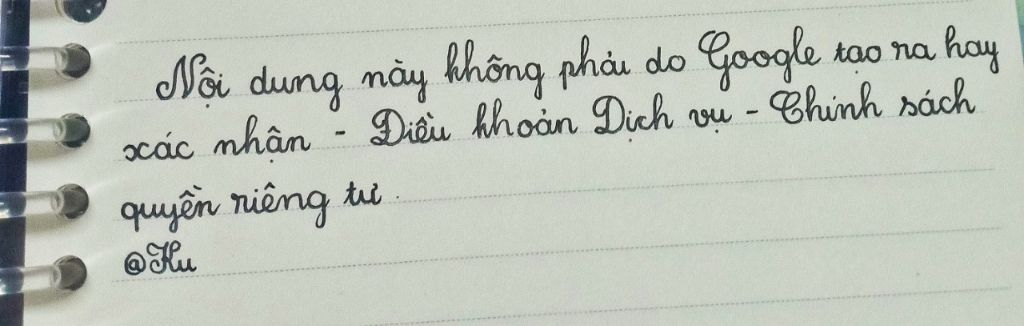 Nội dung này không phải do Google tạo ra hay
xác nhận - Điều khoản Dịch vụ - Chính sách
quyền riêng tư.
@Hu